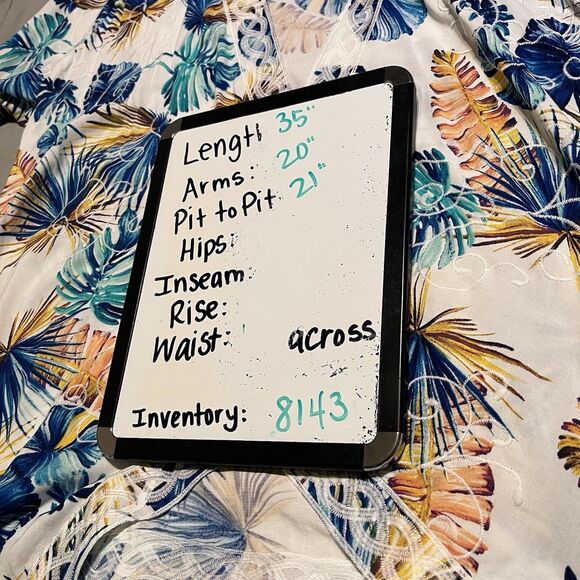 Length 35"
Arms: 20"
Pit to Pit 21"
Hips:
Inseam:
Rise:
Waist: across
Inventory: 8143